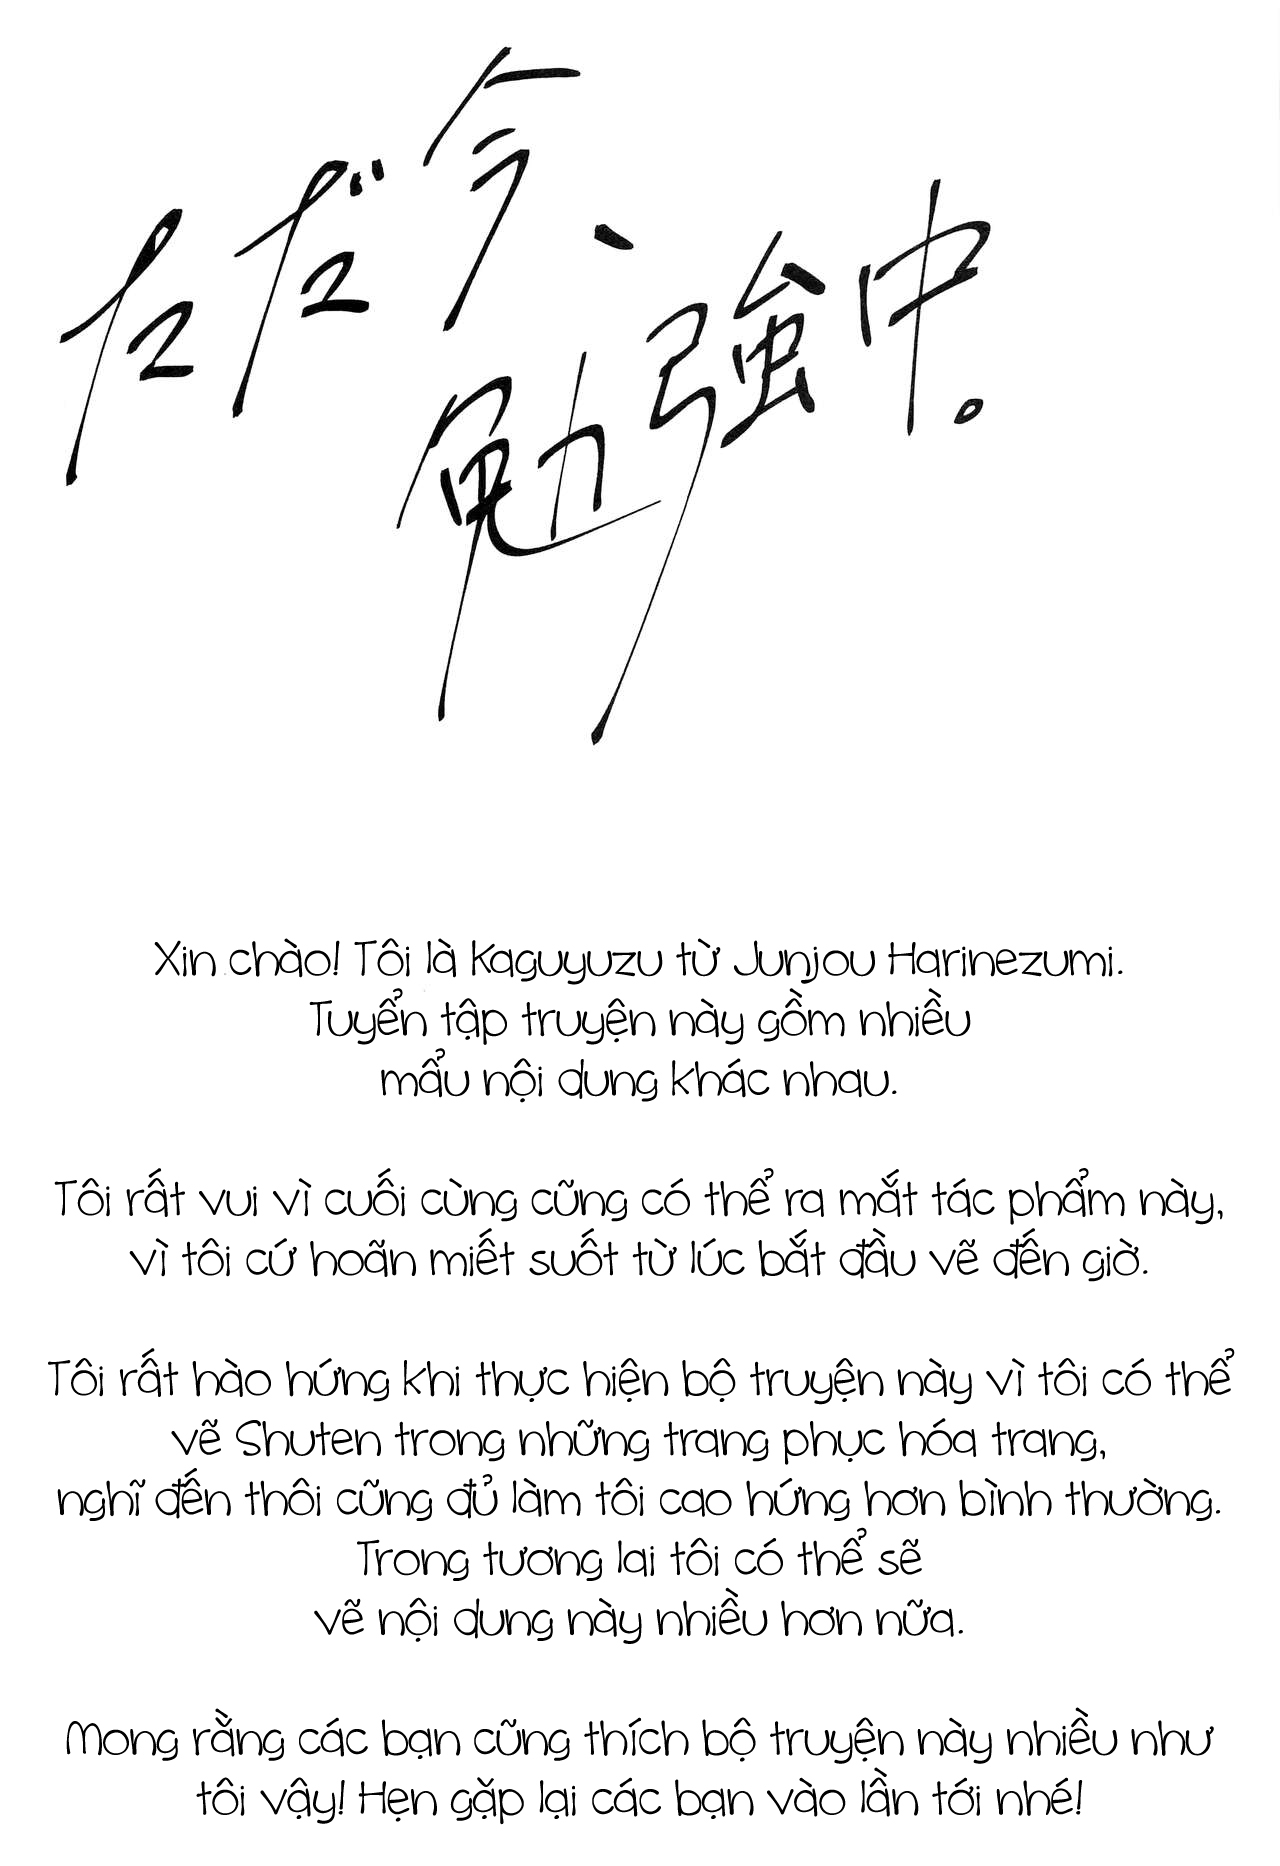 ただ今、
勉強中。
Xin chào! Tôi là Kaguyuzu từ Junjou Harinezumi.
Tuyển tập truyện này gồm nhiều
mẩu nội dung khác nhau.
Tôi rất vui vì cuối cùng cũng có thể ra mắt tác phẩm này,
vì tôi cứ hoãn miết suốt từ lúc bắt đầu vẽ đến giờ.
Tôi rất hào hứng khi thực hiện bộ truyện này vì tôi có thể
vẽ Shuten trong những trang phục hóa trang,
nghĩ đến thôi cũng đủ làm tôi cao hứng hơn bình thường.
Trong tương lai tôi có thể sẽ
vẽ nội dung này nhiều hơn nữa.
Mong rằng các bạn cũng thích bộ truyện này nhiều như
tôi vậy! Hẹn gặp lại các bạn vào lần tới nhé!